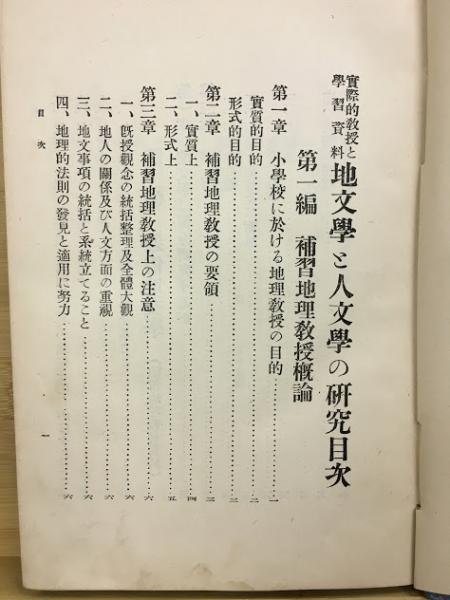 實際的教授と
學習資料
地文學と人文學の研究目次
第一編　補習地理教授概論
第一章　小學校に於ける地理教授の目的…………一
實質的目的…………二
形式的目的…………三
第二章　補習地理教授の要領…………三
一、實質上…………四
二、形式上…………五
第三章　補習地理教授上の注意…………六
一、既授觀念の統括整理及全體大觀…………六
二、地人の關係及び人文方面の重視…………六
三、地文事項の統括と系統立てること…………六
四、地理的法則の發見と適用に努力…………六
目次
一